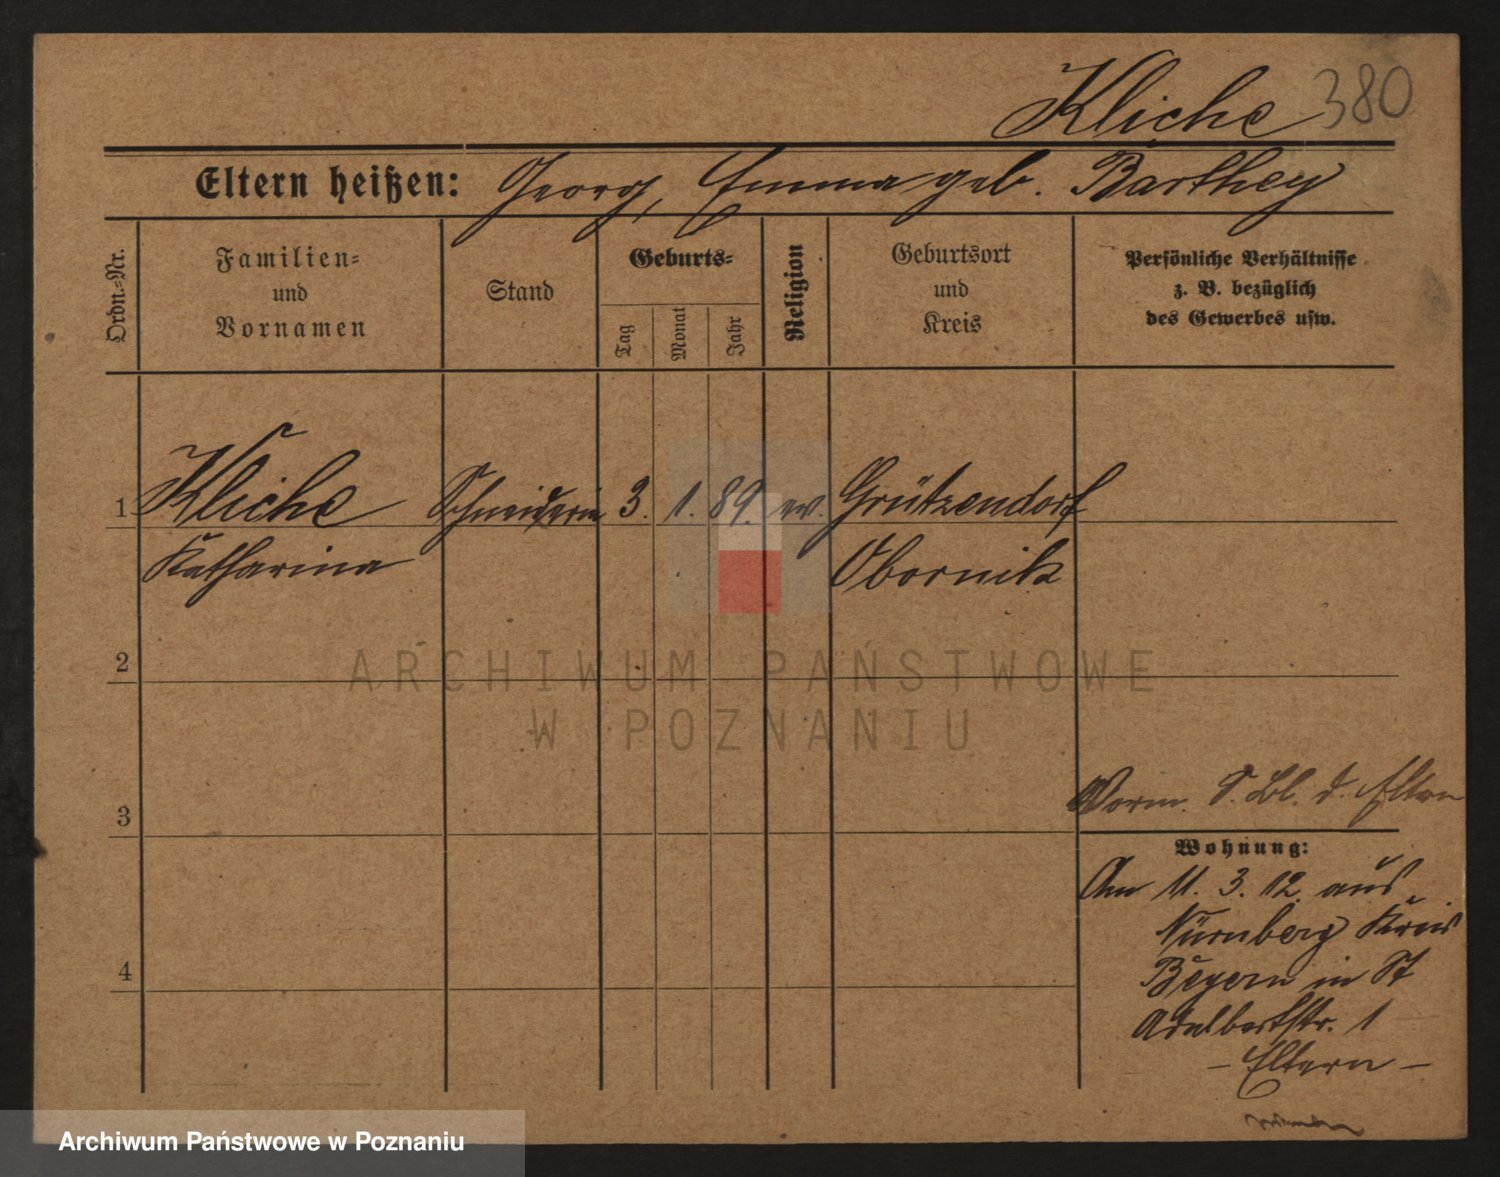 Kliche 380
Eltern heißen: Georg, Emma geb. Barthey
Ordn.-Nr.
Familien-
und
Vornamen
Stand
Geburts-
Tag
Monat
Jahr
Religion
Geburtsort
und
Kreis
Persönliche Verhältnisse
z. B. bezüglich
des Gewerbes usw.
1 Kliche Schneiderin 3. 1. 89. ev. Grützendorf
Katharina Obornik
ARCHIWUM PAŃSTWOWE
W POZNANIU
2
3
4
Vorm. S. Bl. d. Eltern
Wohnung:
Am 11. 3. 12. aus
Nürnberg Kreis
Beyern in St
Adalbertstr. 1
– Eltern –
Archiwum Państwowe w Poznaniu